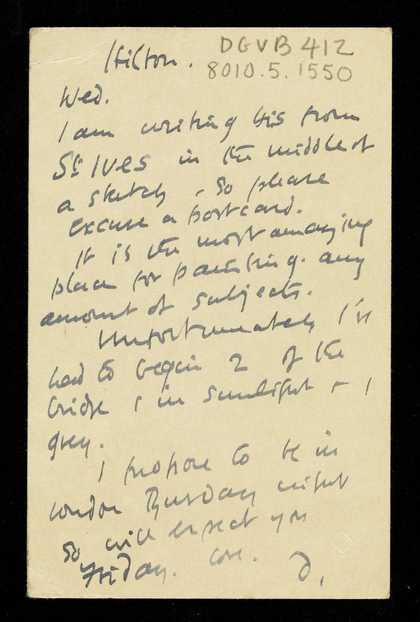 Hilton. DGVB 412
8010.5.1550
Wed.
I am writing this from
St Ives in the middle of
a sketch, so please
excuse a postcard.
It is the most amazing
place for painting. any
amount of subjects.
Unfortunately I've
had to begin 2 of the
bridge 1 in sunlight & 1
grey.
I propose to be in
London Thursday night
so will expect you
Friday. love.
D.